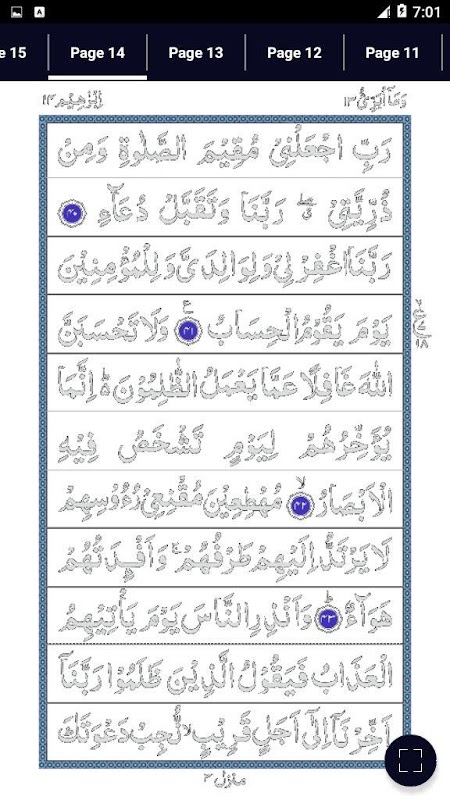 7:01
e 15 Page 14 Page 13 Page 12 Page 11
اِبْرٰهِيْم ١٤ وَمَآ اُبَرِّئُ ١٣
رَبِّ اجْعَلْنِيْ مُقِيْمَ الصَّلٰوةِ وَمِنْ
ذُرِّيَّتِيْ ۖ رَبَّنَا وَتَقَبَّلْ دُعَآءِ ۴۰
رَبَّنَا اغْفِرْ لِيْ وَلِوَالِدَيَّ وَلِلْمُؤْمِنِيْنَ
يَوْمَ يَقُوْمُ الْحِسَابُ ۴۱ وَلَا تَحْسَبَنَّ
اللّٰهَ غَافِلًا عَمَّا يَعْمَلُ الظّٰلِمُوْنَ ؕ اِنَّمَا
يُؤَخِّرُهُمْ لِيَوْمٍ تَشْخَصُ فِيْهِ
الْاَبْصَارُ ۴۲ مُهْطِعِيْنَ مُقْنِعِيْ رُءُوْسِهِمْ
لَا يَرْتَدُّ اِلَيْهِمْ طَرْفُهُمْ ۚ وَاَفْـِٕدَتُهُمْ
هَوَآءٌ ۴۳ وَاَنْذِرِ النَّاسَ يَوْمَ يَاْتِيْهِمُ
الْعَذَابُ فَيَقُوْلُ الَّذِيْنَ ظَلَمُوْا رَبَّنَآ
اَخِّرْنَآ اِلٰٓى اَجَلٍ قَرِيْبٍ ۙ نُّجِبْ دَعْوَتَكَ
منزل ٣